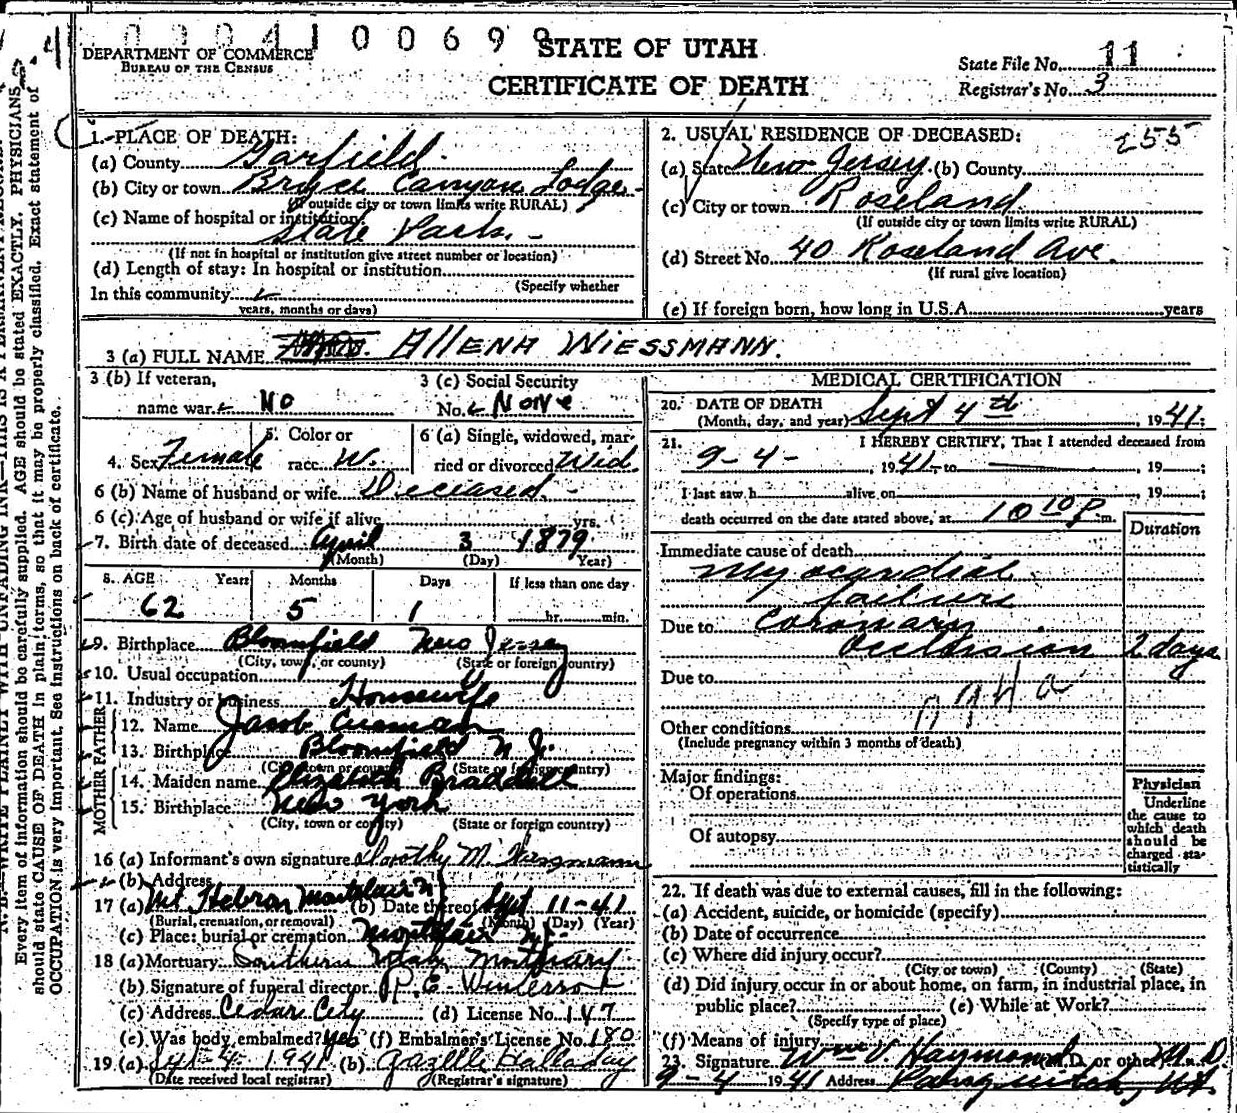 00041 00699
STATE OF UTAH
CERTIFICATE OF DEATH
DEPARTMENT OF COMMERCE
BUREAU OF THE CENSUS
State File No. 11
Registrar's No. 3
Every item of information should be carefully supplied. AGE should be stated EXACTLY. PHYSICIANS
should state CAUSE OF DEATH in plain terms, so that it may be properly classified. Exact statement of
OCCUPATION is very important. See instructions on back of certificate.
1. PLACE OF DEATH:
(a) County Garfield
(b) City or town Bryce Canyon Lodge
(If outside city or town limits write RURAL)
(c) Name of hospital or institution
State Park
(If not in hospital or institution give street number or location)
(d) Length of stay: In hospital or institution
(Specify whether
In this community
years, months or days)
2. USUAL RESIDENCE OF DECEASED: 255
(a) State New Jersey (b) County
(c) City or town Roseland
(If outside city or town limits write RURAL)
(d) Street No. 40 Roseland Ave.
(If rural give location)
(e) If foreign born, how long in U.S.A. years
3 (a) FULL NAME ALLENA WIESSMANN.
3 (b) If veteran,
name war No
3 (c) Social Security
No. None
4. Sex Female
5. Color or
race W.
6 (a) Single, widowed, mar-
ried or divorced Wid.
6 (b) Name of husband or wife Deceased
6 (c) Age of husband or wife if alive yrs.
7. Birth date of deceased April 3 1879
(Month) (Day) Year)
8. AGE Years Months Days If less than one day
62 5 1 hr. min.
9. Birthplace Bloomfield New Jersey
(City, town, or county) (State or foreign country)
10. Usual occupation
11. Industry or business Housewife
FATHER
12. Name Jacob
13. Birthplace Bloomfield N.J.
(City, town or county) (State or foreign country)
MOTHER
14. Maiden name Elizabeth
15. Birthplace New York
(City, town or county) (State or foreign country)
16 (a) Informant's own signature Dorothy M. Wiessmann
(b) Address
17 (a) Mt Hebron Montclair N (b) Date thereof Sept 11-41
(Burial, cremation, or removal) (Month) (Day) (Year)
(c) Place: burial or cremation Montclair N.J.
18 (a) Mortuary Southern Utah Mortuary
(b) Signature of funeral director
(c) Address Cedar City (d) License No. 147
(e) Was body embalmed? yes (f) Embalmer's License No. 180
19 (a) Sept-4-1941 (b) Gazelle Halladay
(Date received local registrar) (Registrar's signature)
MEDICAL CERTIFICATION
20. DATE OF DEATH
(Month, day, and year) Sept 4th 1941.
21. I HEREBY CERTIFY, That I attended deceased from
9-4-, 1941, to , 19 ;
I last saw h alive on , 19 ;
death occurred on the date stated above, at 10 10 P. m.
Duration
Immediate cause of death
Myocardial
failure
Due to Coronary
Occlusion 2 days
Due to
Other conditions
(Include pregnancy within 3 months of death)
Major findings:
Of operations
Of autopsy
Physician
Underline
the cause to
which death
should be
charged sta-
tistically
22. If death was due to external causes, fill in the following:
(a) Accident, suicide, or homicide (specify)
(b) Date of occurrence
(c) Where did injury occur?
(City or town) (County) (State)
(d) Did injury occur in or about home, on farm, in industrial place, in
public place? (e) While at Work?
(Specify type of place)
(f) Means of injury
23. Signature Wm V. Haymond M.D. or other M.D.
9-4 1941 Address Panguitch, Ut.